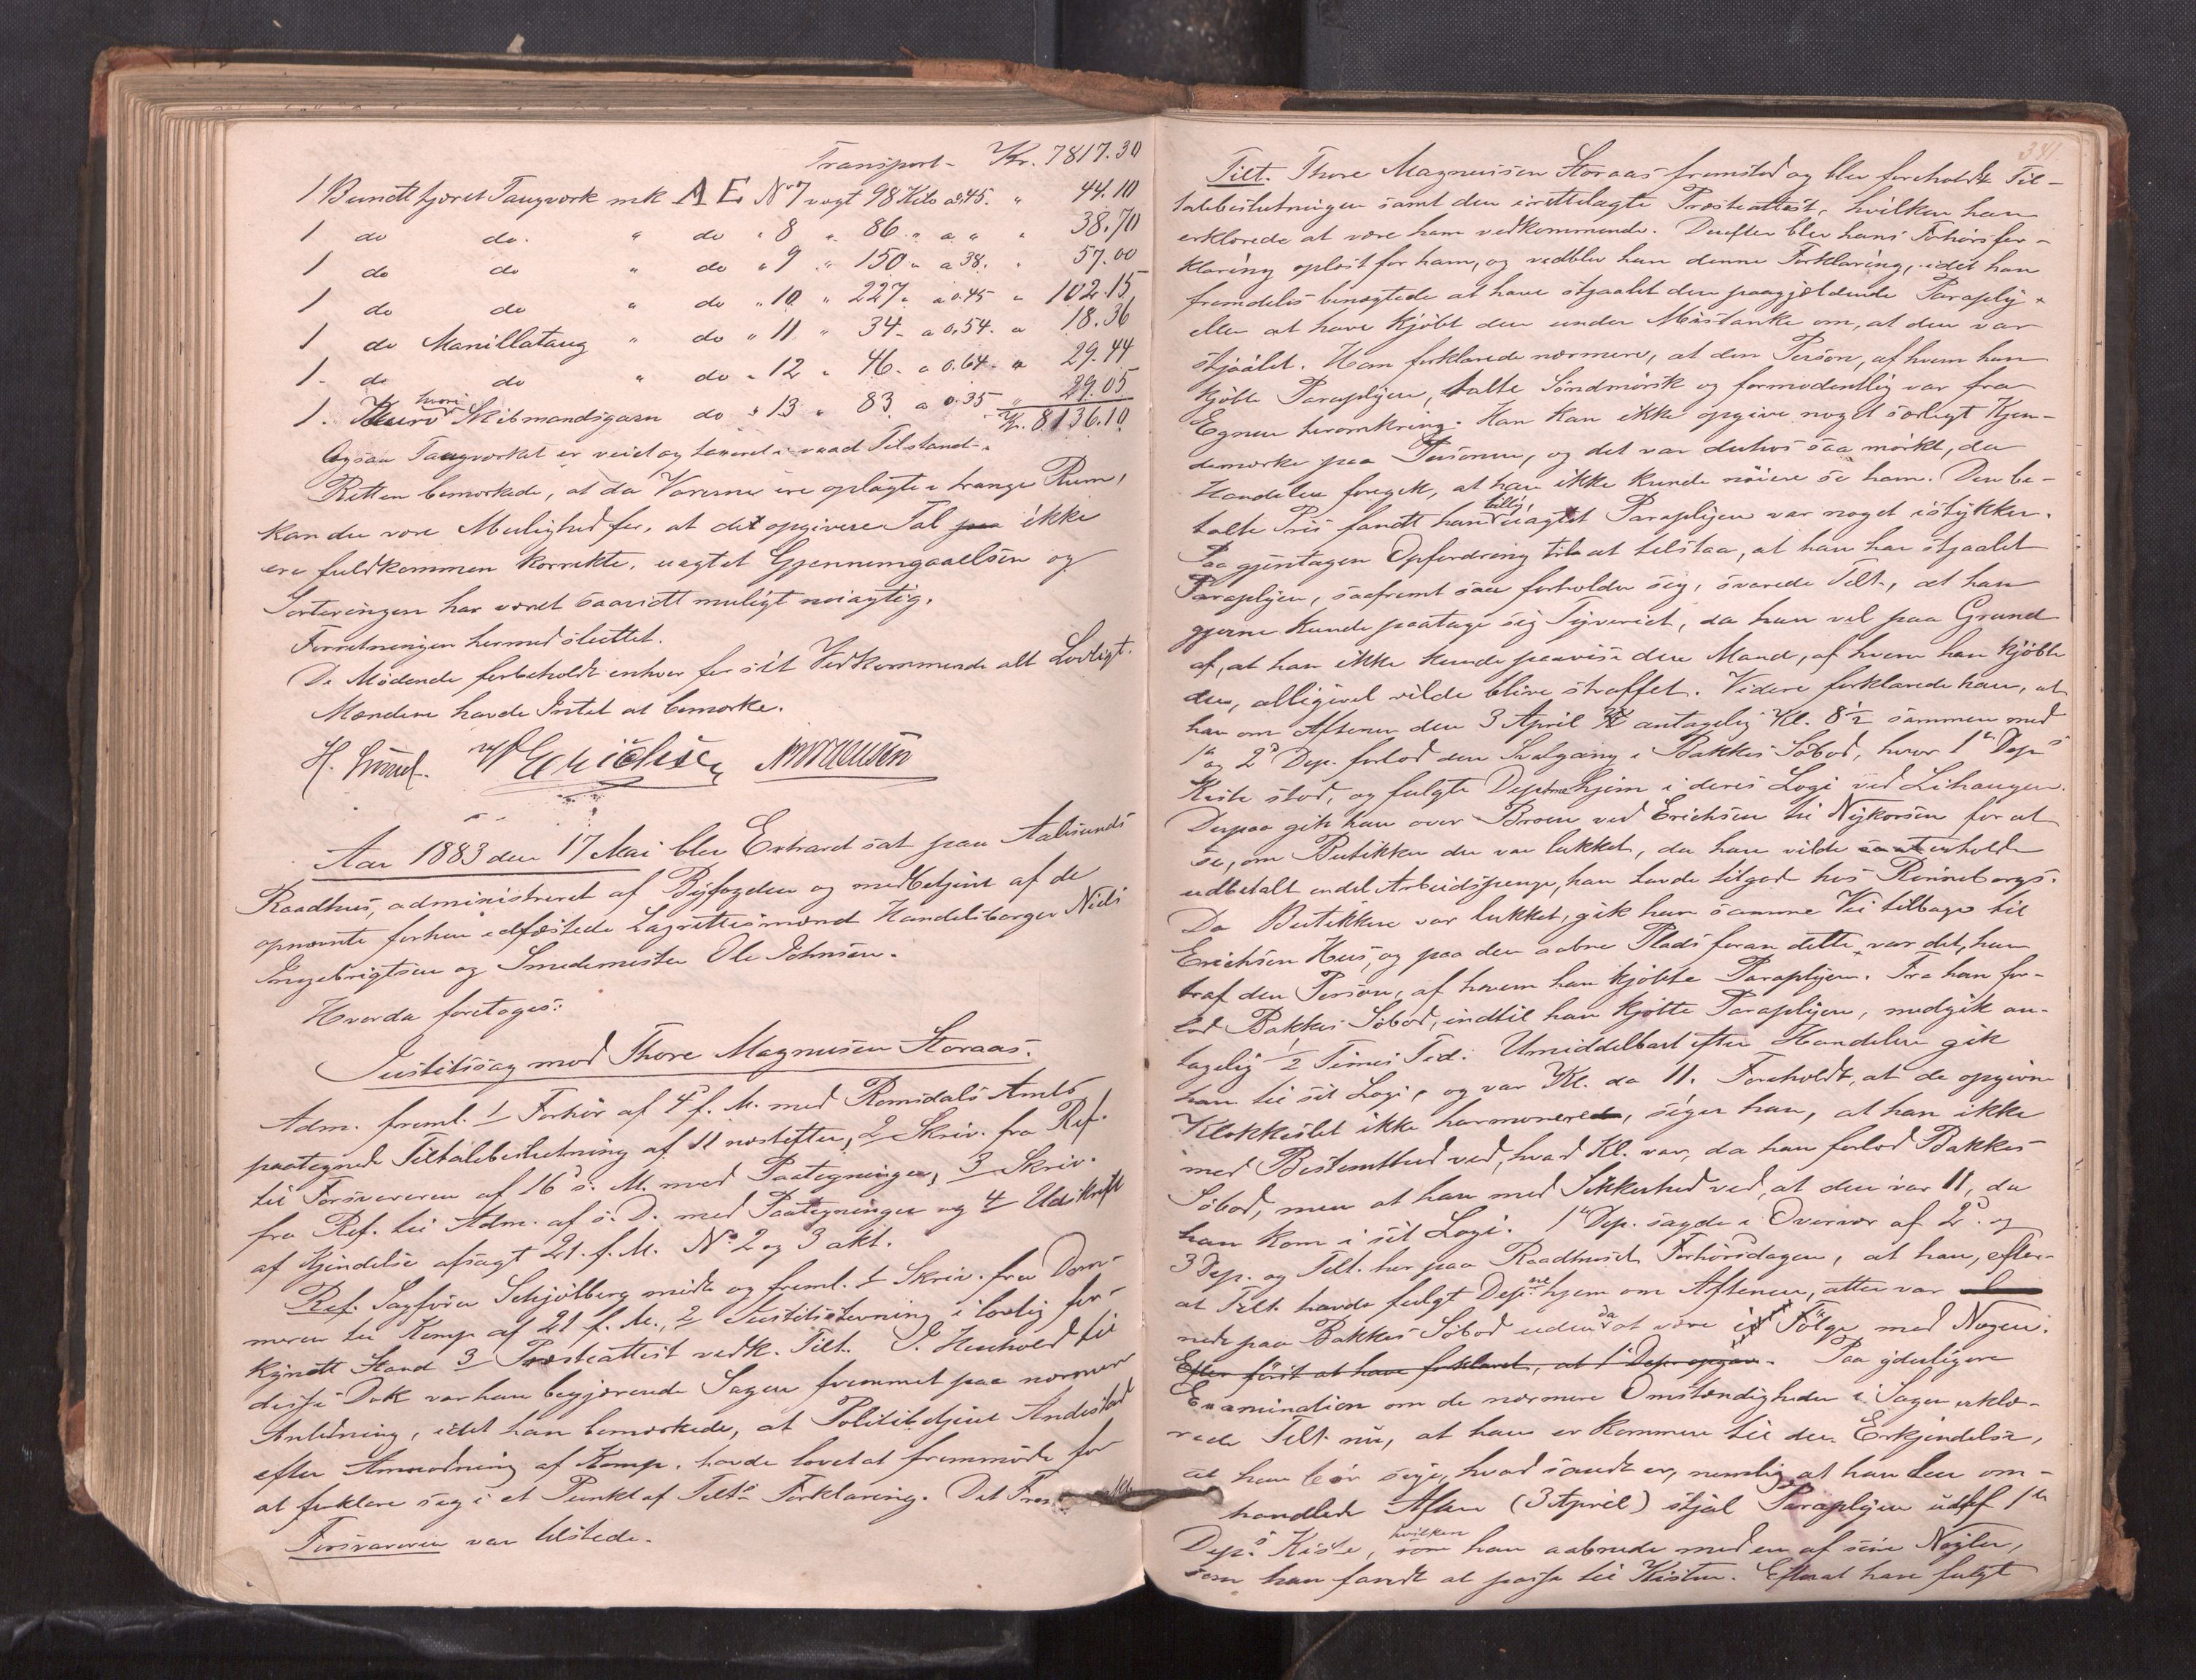 Transport - Kr. 7817.30
1 Bundt tjæret Taugværk mk AE No 7 vægt 98 Kilo a 0.45. " 44.10
1 do do. " do " 8 " 86 " a " " 38.70
1 do do " do " 9 " 150 " a 38. " 57.00
1 do do " do " 10 " 227 " a 0.45 " 102.15
1 do Manillataug " do " 11 " 34 - a 0.54. " 18.36
1 - do do " do " 12 " 46 - a 0.64 - " 29.44
1. hvori Skibmandsgarn do " 13 " 83 a 0.35 " 29.05
Kr. 8136.10
Ogsaa Taugværket er veiet og taxeret i vaad Tilstand.
Retten bemærkede, at da Varerne ere oplagte i trange Rum,
kan der være Mulighed for, at det opgivne Tal paa ikke
ere fuldkommen korrekte, uagtet Gjennemgaaelsen og
Sorteringen har været saavidt muligt nøiagtig.
Forretningen hermed sluttet.
De Mødende forbeholdt enhver for sit Vedkommende alt Lovligt.
Mændene havde Intet at bemærke.
Aar 1883 den 17 Mai blev Extraret sat paa Aalesunds
Raadhus, administreret af Byfogden og medbetjent af de
opnævnte forhen edfæstede Lagrettesmænd Handelsborger Niels
Ingebrigtsen og Smedemester Ole Johnsen.
Hvorda foretoges:
Justitssag mod Thore Magnussen Storaas.
Adm. freml. 1 Forhør af 4de f. M. med Romsdals Amts
paategnede Tiltalebeslutning af 11 næstefter, 2 Skriv. fra Ref.
til Forsvareren af 16 s. M. med Paategninger, 3 Skriv.
fra Ref. til Adm. af s. D. med Paategninger og 4 Udskrift
af Kjendelse afsagt 21. f. M. No 2 og 3 akt.
Ref. Sagfører Schjølberg mødte og freml. 1 Skriv. fra Dom-
meren til Komp. af 21 f. M., 2 Justitsstevning i lovlig for-
kyndt Stand 3 Præsteattest vedk. Tilt. I Henhold til
disse Dok. var han begjærende Sagen fremmet paa nærmere
Anledning, idet han bemærkede, at Politibetjent Andestad
efter Anmodning af Komp. havde lovet at fremmøde for
at forklare sig i et Punkt af Tilts Forklaring. Det
Forsvareren var tilstede.
381
Tilt. Thore Magnussen Storaas fremstod og blev foreholdt Til-
talebeslutningen samt den irettelagte Præsteattest, hvilken han
erklærede at være ham vedkommende. Derefter blev hans Forhørsfor-
klaring oplæst for ham, og vedblev han denne Forklaring, idet han
fremdeles benægtede at have stjaalet den paagjældende Paraply
eller at have kjøbt den under Mistanke om, at den var
stjaalet. Han forklarede nærmere, at den Person, af hvem han
kjøbte Paraplyen, talte Søndmørsk og formodentlig var fra
Egnen heromkring. Han kan ikke opgive noget særligt Kjen-
demærke paa Personen, og det var derhos saa mørkt, da
Handelen foregik, at han ikke kunde nøiere se ham. Den be-
talte Pris fandt han billig, uagtet Paraplyen var noget istykker.
Paa gjentagen Opfordring til at tilstaa, at han har stjaalet
Paraplyen, saafremt saa forholder sig, svarede Tilt., at han
gjerne kunde paatage sig Tyveriet, da han vel paa Grund
af, at han ikke kunde paavise den Mand, af hvem han kjøbte
den, alligevel vilde blive straffet. Videre forklarede han, at
han om Aftenen den 3 April antagelig Kl. 8½ sammen med
1ste og 2den Dep. forlod den Svalgang i Bakkes Søbod, hvor 1ste Deps
Kiste stod, og fulgte Deptne hjem i deres Logi ved Lihaugen.
Derpaa gik han over Broen ved Erichsen til Nykorsen for at
se, om Butikken der var lukket, da han vilde erholde
udbetalt endel Arbeidspenge, han havde tilgode hos Rønnebergs.
Da Butikken var lukket, gik han samme Vei tilbage til
Erichsen Hus, og paa den aabne Plads foran dette var det, han
traf den Person, af hvem han kjøbte Paraplyen. Fra han for-
lod Bakkes Søbod, indtil han kjøbte Paraplyen, medgik an-
tagelig ½ Times Tid. Umiddelbart efter Handelen gik
han til sit Logi, og var Kl. da 11. Foreholdt, at de opgivne
Klokkeslet ikke harmonere, siger han, at han ikke
med Bestemthed ved, hvad Kl. var, da han forlod Bakkes
Søbod, men at han med Sikkerhed ved, at den var 11, da
han kom i sit Logi. 1ste Dep. sagde i Overvær af 2d. og
3 Dep. og Tilt. her paa Raadhuset Forhørsdagen, at han, efter-
at Tilt. havde fulgt Dep.ne hjem om Aftenen, atter var
nede paa Bakkes Søbod uden da at være i Følge med Nogen.
Efter først at have forklaret, at 1ste Dep. opgav. Paa yderligere
Examination om de nærmere Omstændigheder i Sagen erklæ-
rede Tilt. nu, at han er kommen til den Erkjendelse,
at han bør sige, hvad sandt er, nemlig at han den om-
handlede Aften (3 April) stjal Paraplyen udaf 1ste
Dep.s Kiste, hvilken som han aabnede med en af sine Nøgler,
som han fandt at passe til Kisten. Efterat have fulgt